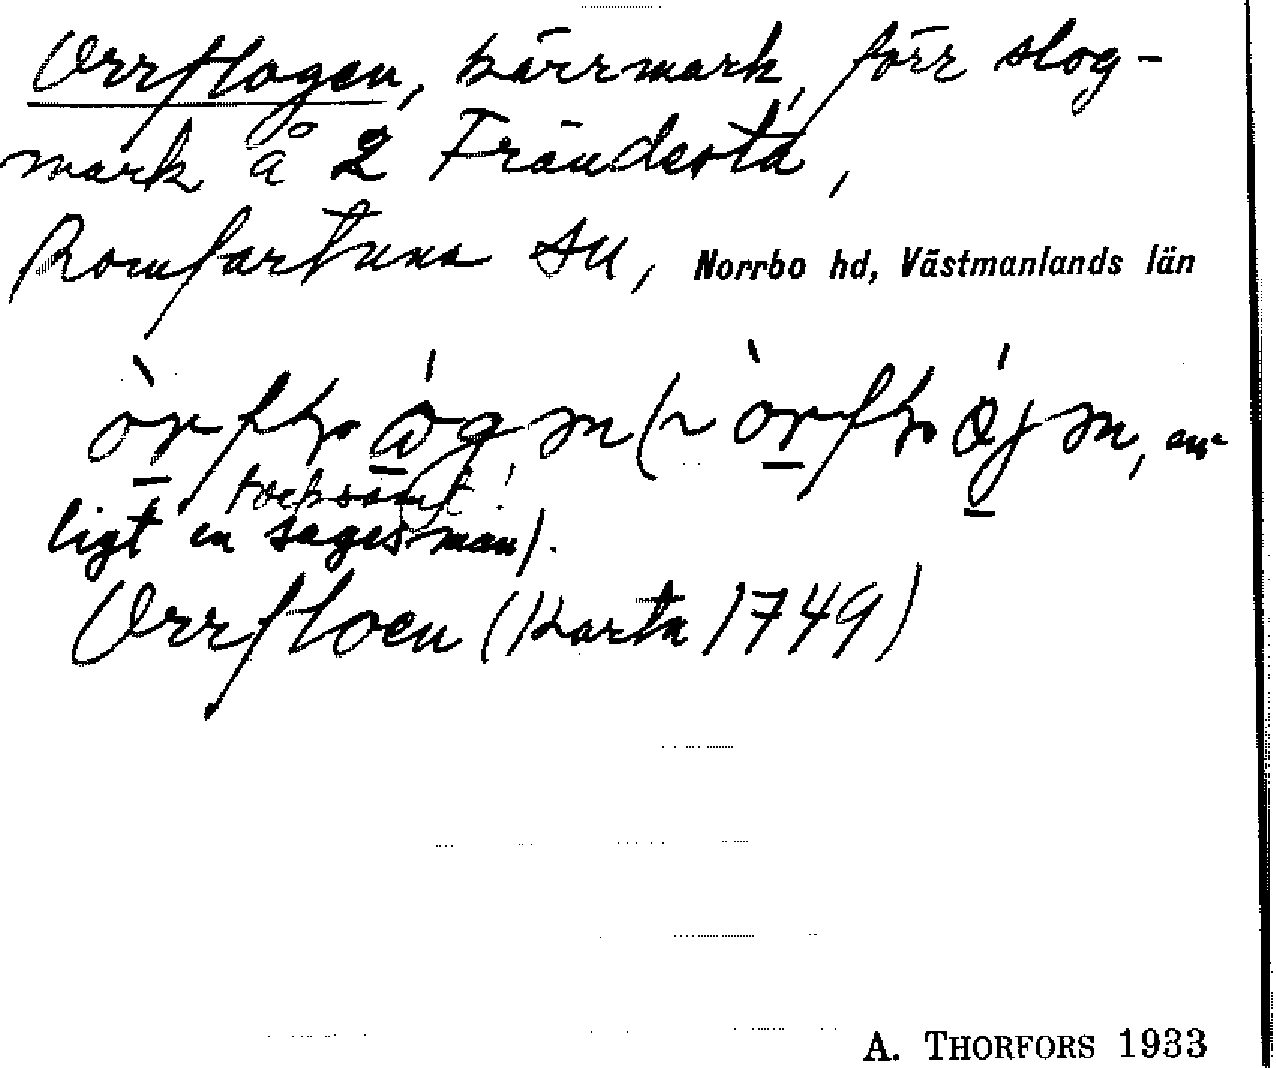 Orrflogen, kärrmark, förr slog-
mark å 2 Frändesta,
Romfartuna sn, Norrbo hd, Västmanlands län
tveksamt!
ligt en sagesman).
Orrfloen (Karta 1749)
A. THORFORS 1933